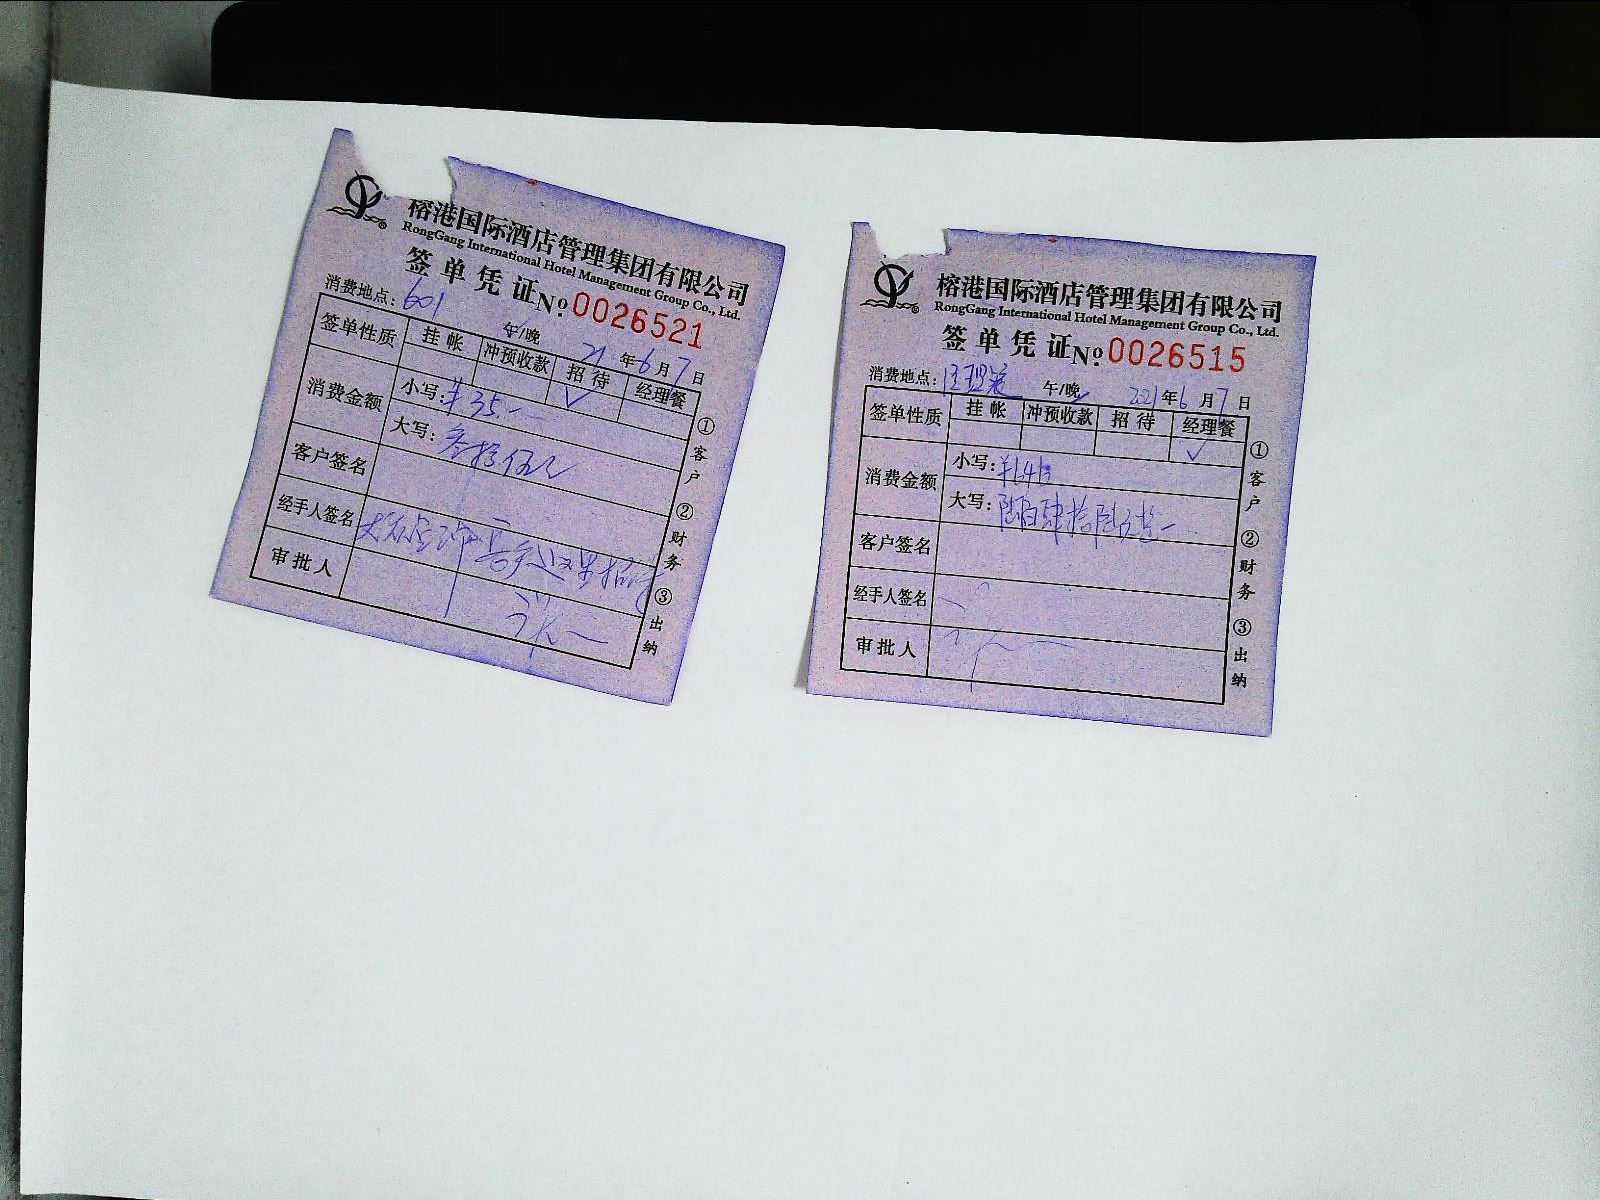 榕港国际酒店管理集团有限公司
RongGang International Hotel Management Group Co., Ltd.
签单凭证 No: 0026521
消费地点: 601 午/晚 21 年 6 月 7 日
签单性质 挂帐 冲预收款 招待 ✓ 经理餐
消费金额 小写: ¥35一
大写: 叁拾伍元
客户签名
经手人签名
审批人
① 客户 ② 财务 ③ 出纳
榕港国际酒店管理集团有限公司
RongGang International Hotel Management Group Co., Ltd.
签单凭证 No: 0026515
消费地点: 午/晚 2021 年 6 月 7 日
签单性质 挂帐 冲预收款 招待 经理餐 ✓
消费金额 小写:
大写:
客户签名
经手人签名
审批人
① 客户 ② 财务 ③ 出纳